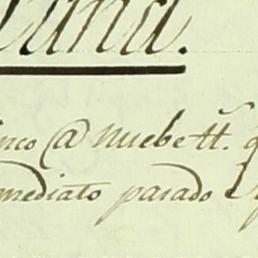 una.
inco @ nuebe tt.
mediato pasado